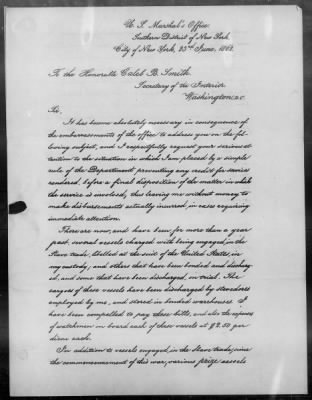 U. S. Marshal's Office.
Southern District of New York
City of New York, 23rd June, 1862.
To the Honorable Caleb B. Smith.
Secretary of the Interior
Washington D.C.
Sir,
It has become absolutely necessary in consequence of
the embarrassments of the office to address you on the fol-
lowing subject, and I respectfully request your serious at-
tention to the situation in which I am placed by a simple
rule of the Department preventing any credit for service
rendered, before a final disposition of the matter in which
the service is involved, thus leaving me without money to
make disbursements actually incurred, in cases requiring
immediate attention.
There are now, and have been, for more than a year
past, several vessels charged with being engaged in the
Slave trade, libelled at the suit of the United States, in
my custody, and others that have been bonded and discharg-
ed, and some that have been discharged, on trial. The
cargoes of these vessels have been discharged by stevedores
employed by me, and stored in bonded warehouses. I
have been compelled to pay these bills, and also the expenses
of watchmen on board each of these vessels at $2.50 per
diem each.
In addition to vessels engaged in the Slave trade, since
the commencement of this war, various prize vessels